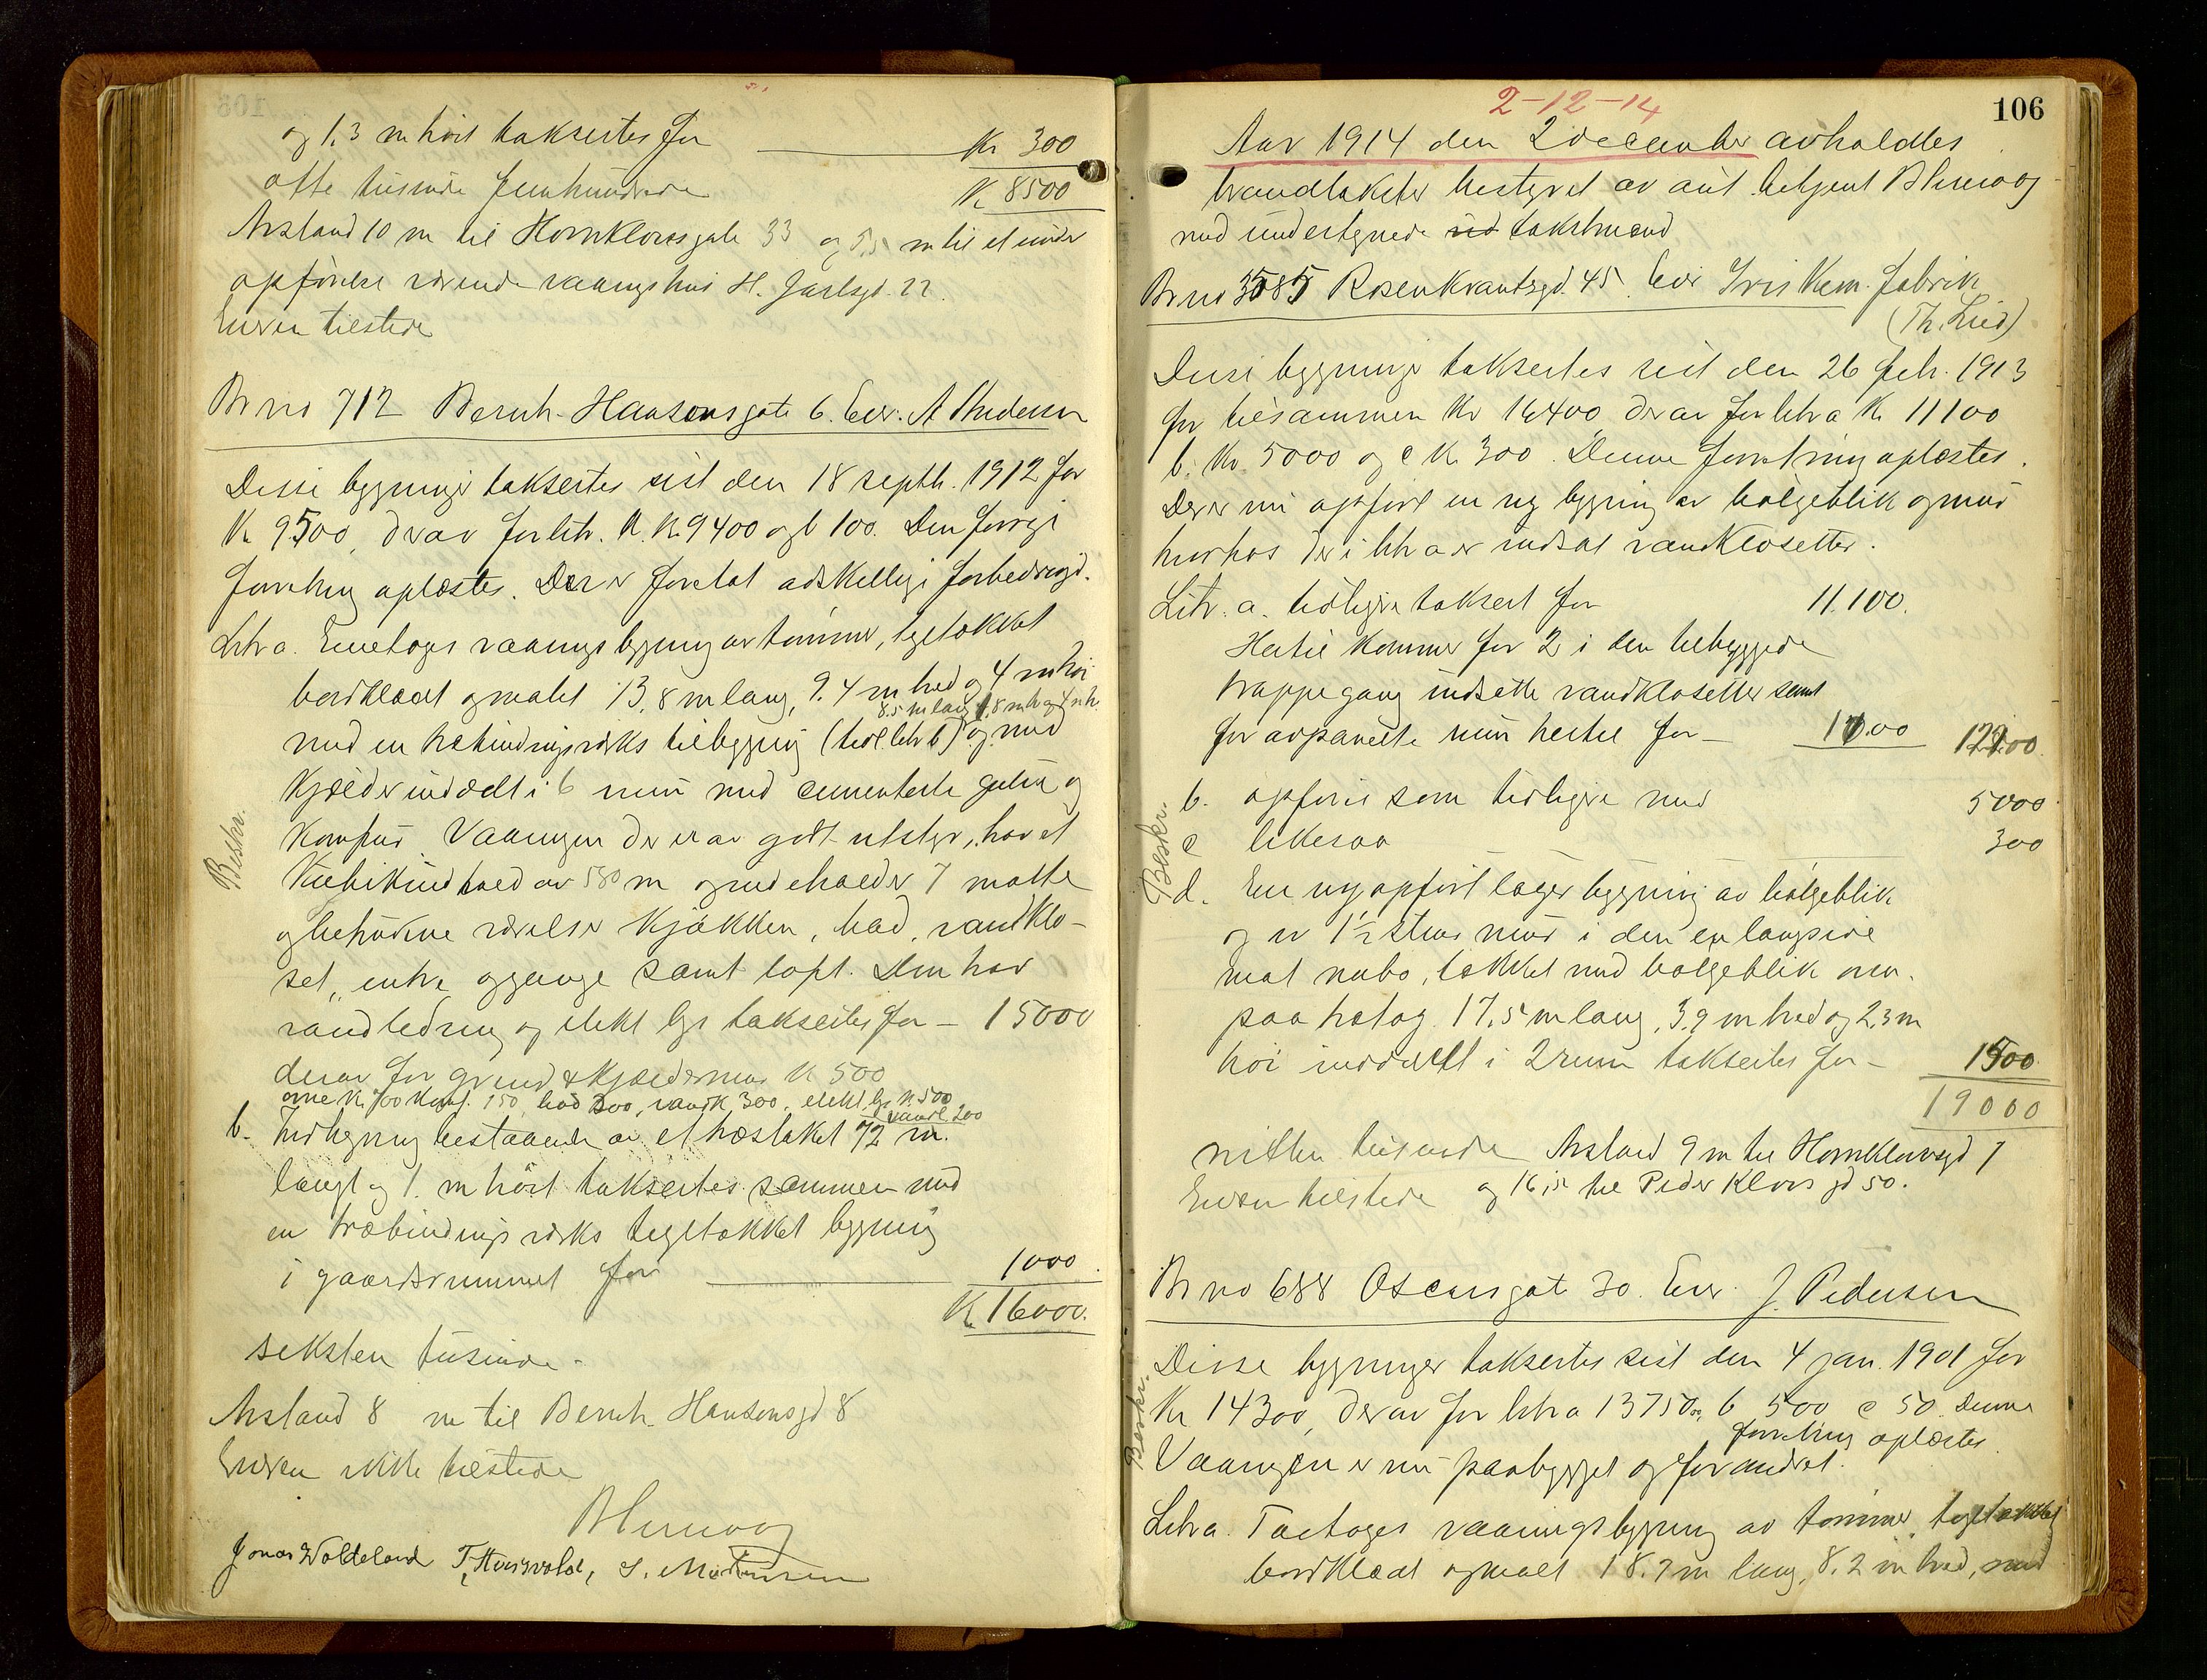 og 1.3 m høit takseres for Kr 300
otte tusinde femhundrede K 8500
Avstand 10 m til Hornklovesgate 33 og 5,5 m til et under
opførelse værende vaaningshus H. Jarlsgd. 22.
Eieren tilstede
Br no 712 Bernh. Hansensgate 6. Eier. A Andersen
Disse bygninger takseertes sist den 18 septb. 1912 for
Kr 9500, derav for litr. A. K. 9400 og b 100. Den forrige
forretning oplæstes. Der er foretat adskellige forbedringr.
Litr a. Enetages vaaningsbygning av tømmer, tegltækket
bordklædt og malet 13,8 m lang, 9.4 m bred og 4 m høi
8.5 m lang 1,8 m br og 4 m h.
med en træbindingsværks tilbygning (tidl. litr b) og med
Kjælder inddelt i 6 rum med cementerte gulve og
Komfur. Vaaningen der er av godt utstyr, har et
Kubikindhold av 580 m og indeholder 7 malte
og betrukne værelser kjøkken, bad, vandklo-
set, entre og gange samt loft. Den har
vandledning og elekt lys takseertes for – 15000
derav for grund & kjældermur K 500
ovne K. 700 Komf. 150, bad 300, vandk 300, elekt lys K. 500
vandl. 200
b. Indhegning bestaaende av et træstaket 72 m.
langt og 1. m høit takseertes sammen med
en træbindings værks tegltækket bygning
i gaardsrummet for 1000.
K. 16000.
seksten tusinde.
Avstand 8 m til Bernh. Hansensgd 8
Eieren ikke tilstede
Beskr.
Jonas Woldeland T. Hus[?]vold, S. Mortensen
106
2-12-14
Aar 1914 den 2 december avholdtes
brandtakster bestyret av aut. betjent
med undertegnede takstmænd
Br no 3585 Rosenkrantzgd. 45. Eier Iris Kem. fabrik
(Th. Lied)
Disse bygninger takseertes sist den 26 feb. 1913
for tilsammen Kr 16400, derav for litr a K. 11100
b. Kr. 5000 og c K. 300. Denne forretning oplæstes.
Der er nu opført en ny bygning av bølgeblik og mur
hvorhos der i litr a er indsat vandklosetter.
Litr. a. tidligere taksert for 11.100.
Hertil kommer for 2 i den tilbyggede
trappegang indsatte vandklosetter samt
for avpanelte rum hertil for – 1100 12200.
b. opføres som tidligere med 5000
c likesaa 300
d. En nyopført lagerbygning av bølgeblik
og av 1½ stens mur i den en langside
mot nabo, tækket med bølgeblik
paa tretag 17,5 m lang, 3,9 m bred og 2,3 m
høi inddelt i 2 rum takseertes for – 1500.
19000
nitten tusinde Avstand 9 m til Hornklovesgd 7
Eieren tilstede og 16,5 til Peder Klovs gd 50.
Beskr.
Br no 688 Oscarsgate 30. Eier. J. Pedersen
Disse bygninger takseertes sist den 4 jan. 1901 for
Kr 14300, derav for litr a 13750, b 500 c 50. Denne
forretning oplæstes.
Vaaningen er nu paabygget og forandret.
Beskr.
Litr a. Toetages vaaningsbygning av tømmer, tegltækket
bordklædt og malt 18.7 m lang, 8.2 m bred, med